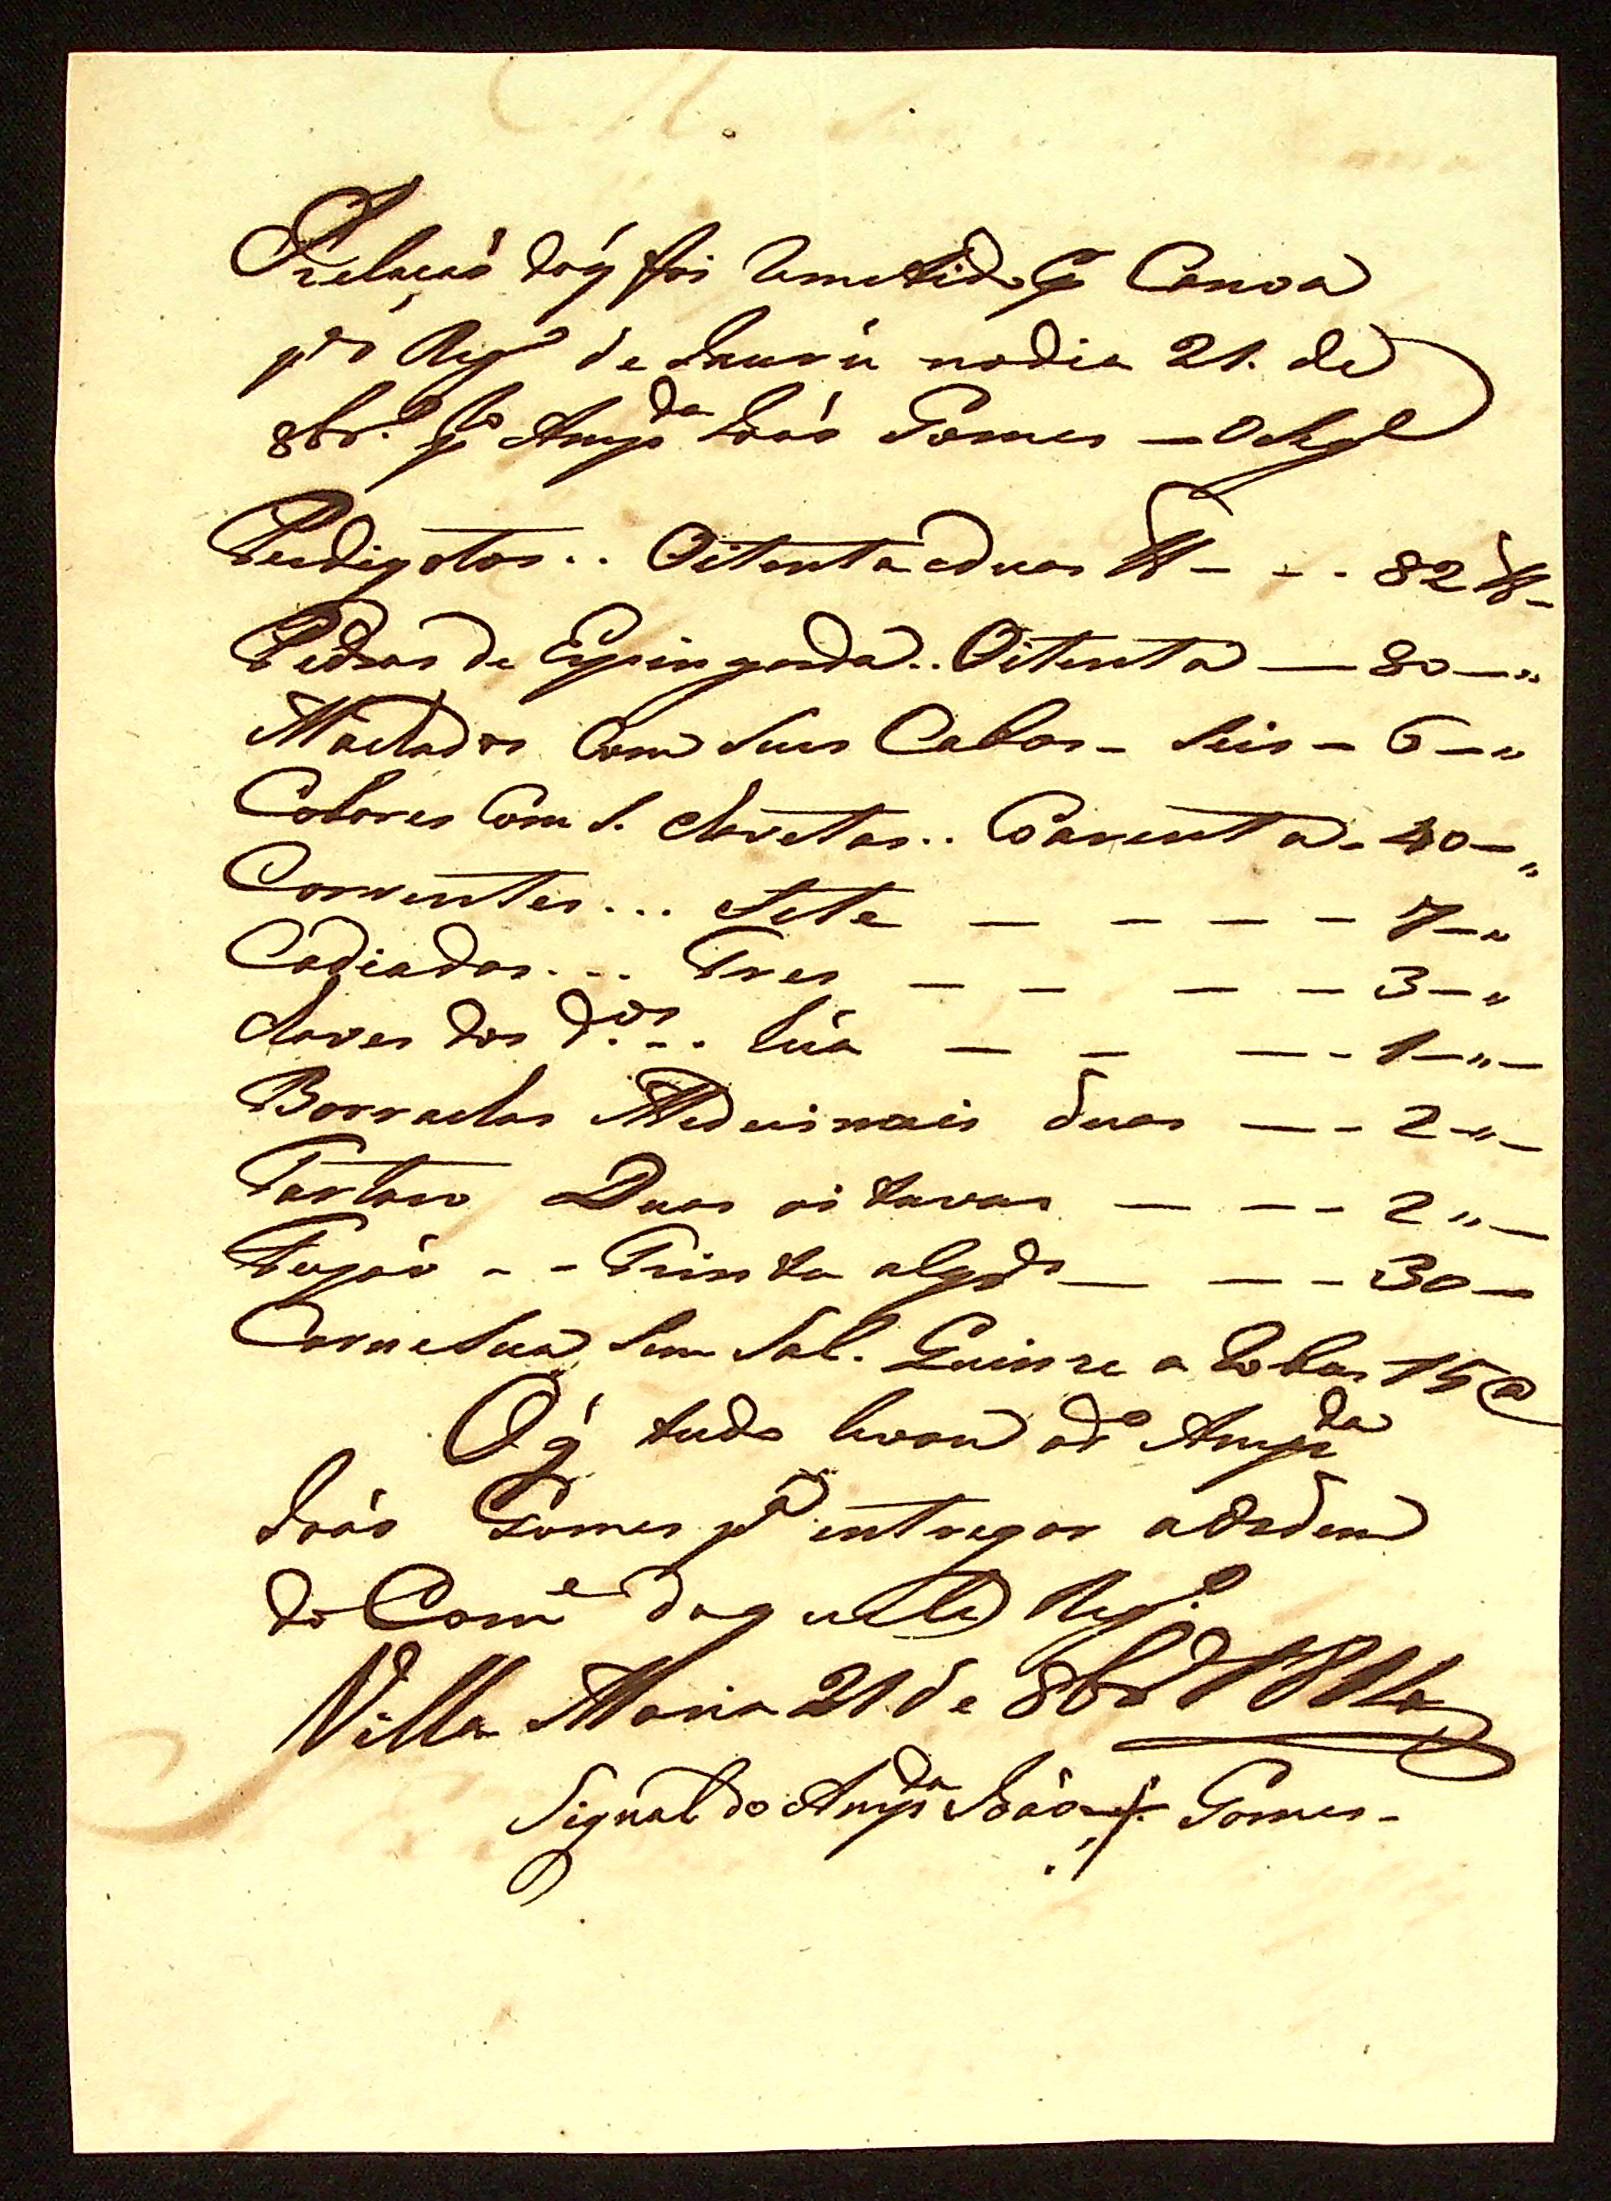 Relaçaõ do q̃ foi Remetido p̃ Canoa
p.ª o Reg.º de Jaurú no dia 21. de
8br.º p.º Anp.da Joaõ Gomes — O Seg.e
Perdigotos .. Oitenta e duas ℔ - - - 82 ℔ -
Pedras de Espingarda .. Oitenta — 80 — "
Machados Com Seus Cabos - Seis - 6 - "
Colares Com S. chavetas .. Coarenta - 40 — "
Correntes ... Sete — — — — 7 - "
Cadiados ... Tres — — — — 3 - "
chaves dos d.os .. huã — — — - 1 - " -
Borrachas Medecinais duas — - 2 - " -
Tartaro Duas oitavas — — - 2 " —
Feijaõ - - Trinta alq.s — — - 30 —
Carne Seca Sem Sal. Quinze arobas 15 @
O q̃ tudo levou o d.º Anp.da
Joaõ Gomes p.ª entregar a Ordem
do Com.e daquelle Reg.º
Villa Maria 21 de 8br.º de 1814
Signal do Anp.da Joaõ + Gomes -